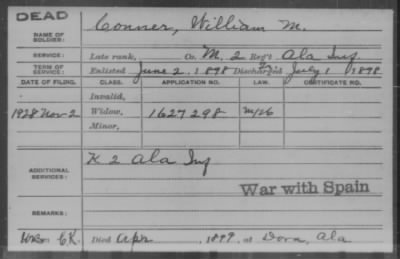 DEAD
NAME OF SOLDIER: Conner, William M.
SERVICE: Late rank, Co. M. 2 Reg't Ala Inf.
TERM OF SERVICE: Enlisted June 2, 1898 Discharged July 1 1898
DATE OF FILING. CLASS. APPLICATION NO. LAW. CERTIFICATE NO.
Invalid,
1928 Nov 2 Widow, 1627298 M/26
Minor,
ADDITIONAL SERVICES: K 2 Ala Inf
War with Spain
REMARKS:
C.K. Died Apr , 1899, at Dora, Ala